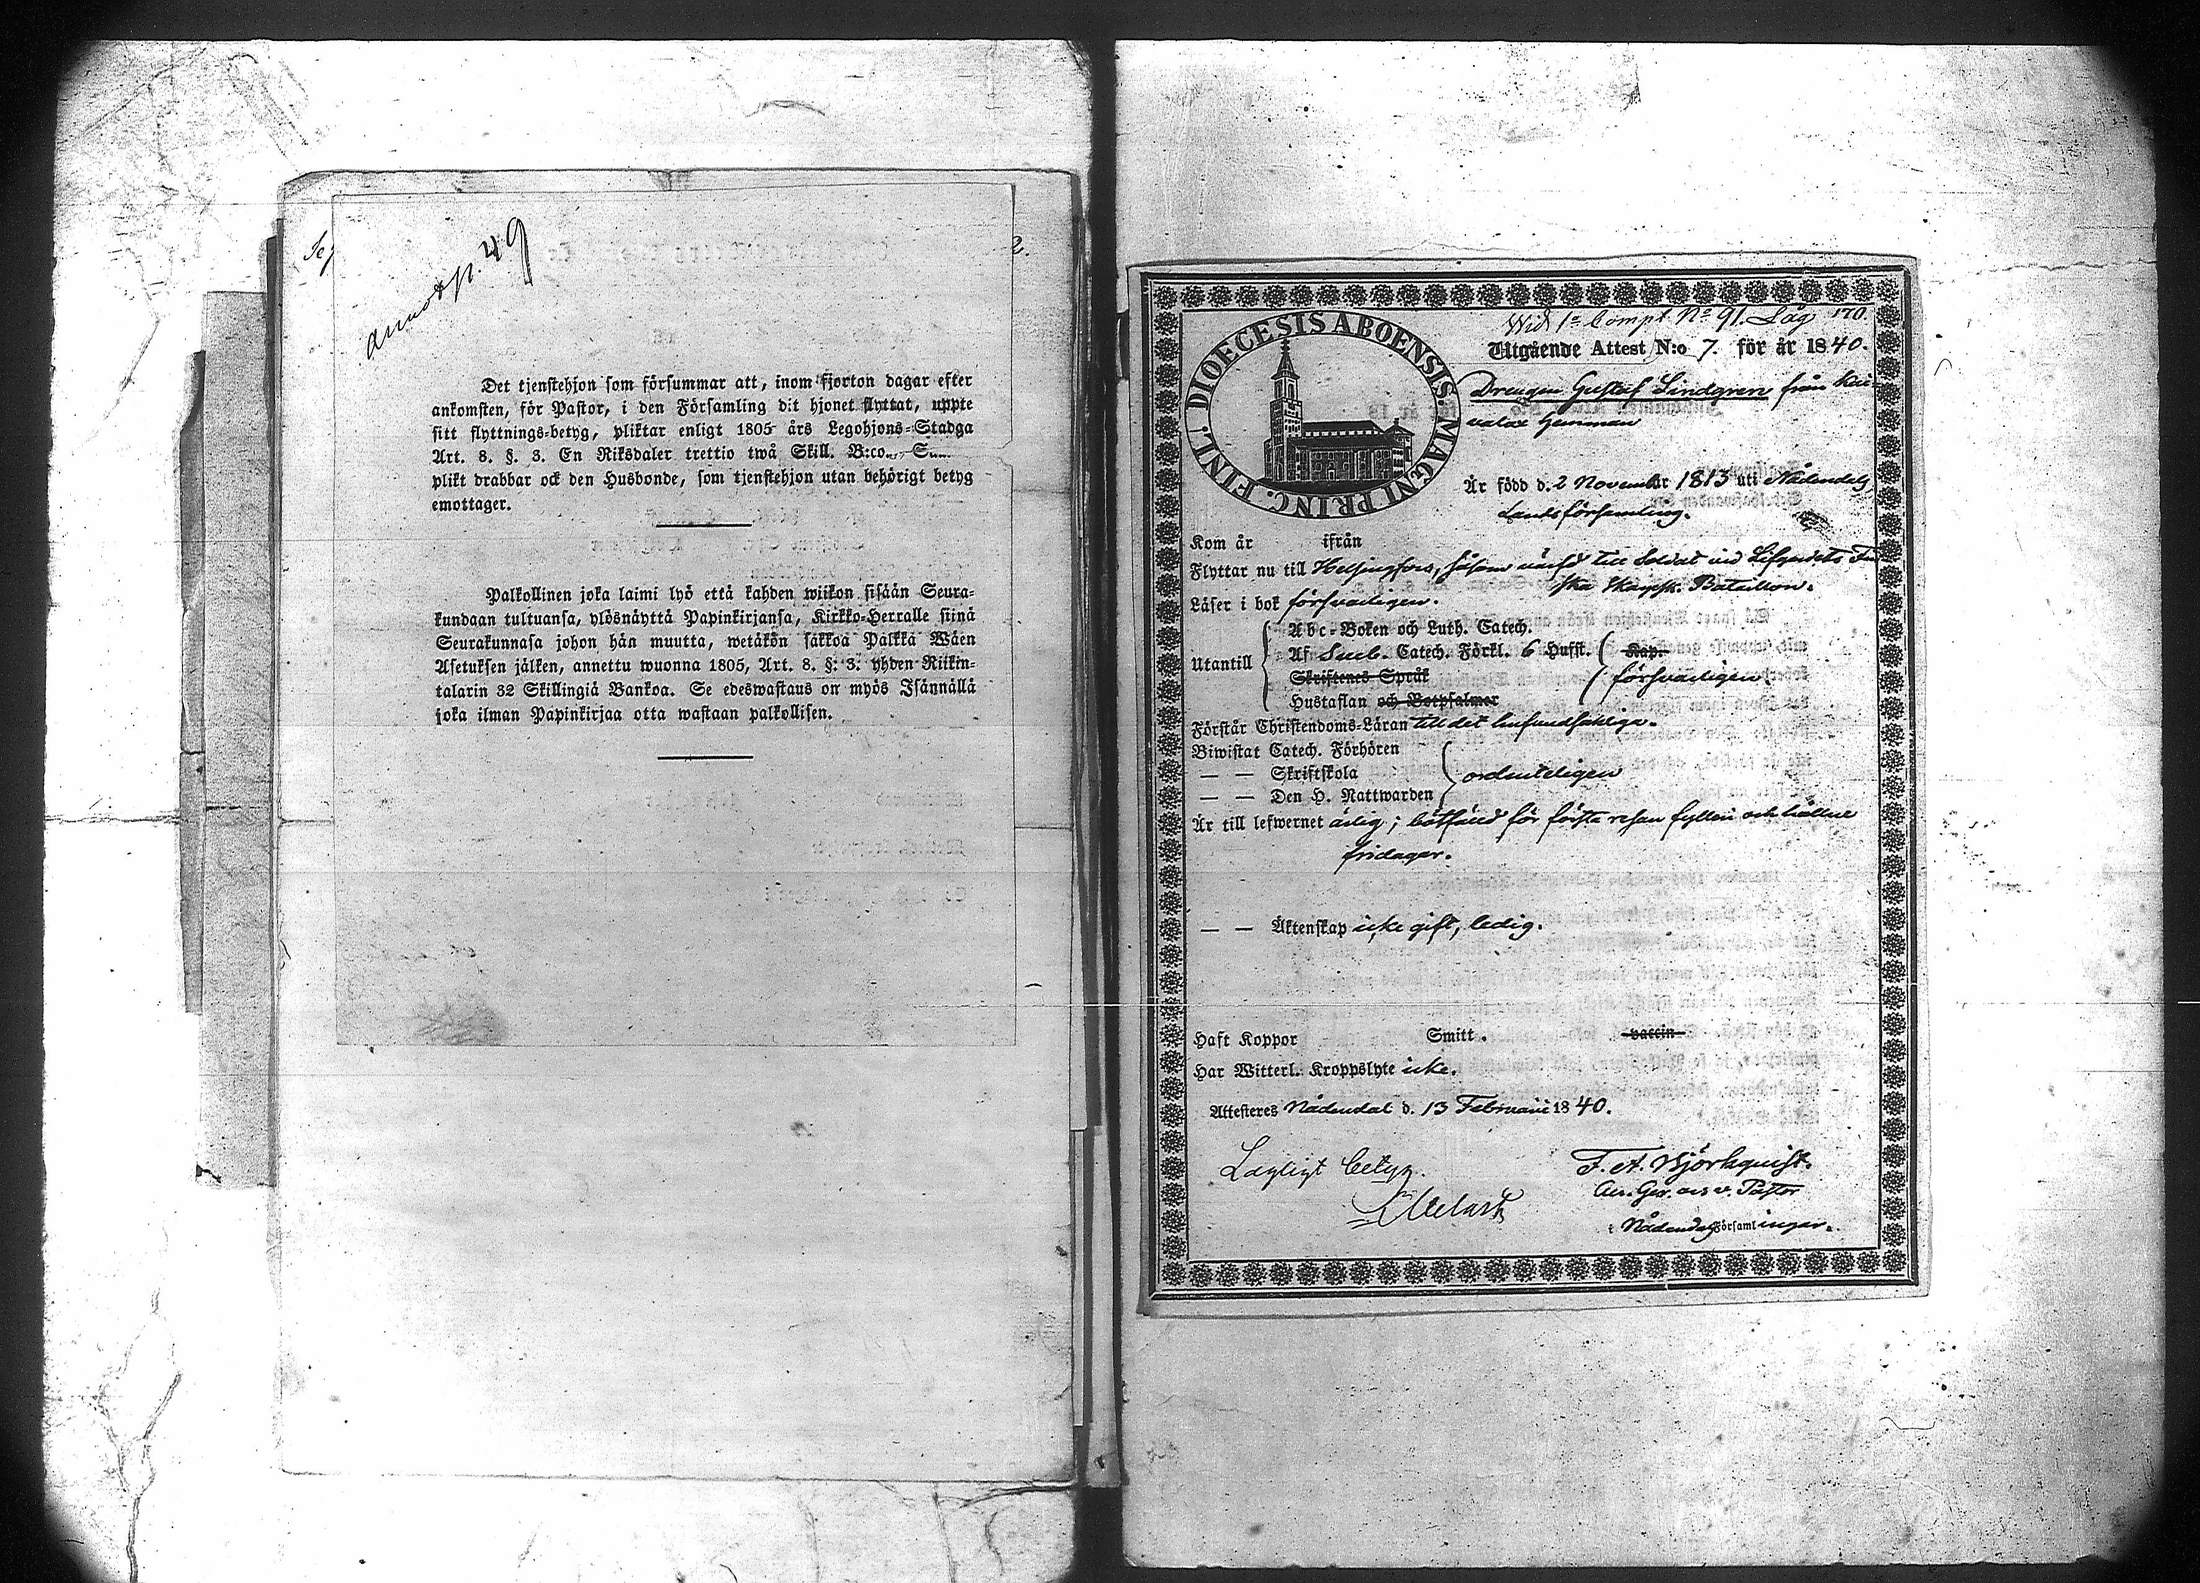 49
Det tjenstehjon som försummar att, inom fjorton dagar efter
ankomsten, för Pastor, i den Församling dit hjonet flyttat, uppte
sitt flyttnings-betyg, pliktar enligt 1805 års Legohjons-Stadga
Art. 8. §. 3. En Riksdaler trettio twå Skill. B:co.
plikt drabbar ock den Husbonde, som tjenstehjon utan behörigt betyg
emottager.
Palkollinen joka laimi lyö että kahden wiikon sisään Seura-
kundaan tultuansa, ylösnäyttä Papinkirjansa, Kirkko-Herralle siinä
Seurakunnasa johon hän muutta, wetäkön säkkoä Palkka Wäen
Asetuksen jälken, annettu wuonna 1805, Art. 8. §: 3: yhden Riikin-
talarin 32 Skillingiä Bankoa. Se edeswastaus on myös Isännällä
joka ilman Papinkirjaa otta wastaan palkollisen.
DIOECESIS ABOENSIS. MAGNI PRINC. FINL.
Wid 1:a Comp. No 91.
Utgående Attest N:o 7. för år 1840.
Drengen Gustaf Lindgren från
hemman
Är född d. 2 November 1813 uti Nådendals
Landsförsamling.
Kom år ifrån
Flyttar nu till Helsingfors, såsom till Soldat vid Lifgardets Fin
ska Skarpsk. Bataillon.
Läser i bok försvarligen.
Utantill
Abc-Boken och Luth. Catech.
Af Sveb. Catech. Förkl. 6 Hufst. Kap.
Skriftenes Språk försvarligen.
Hustaflan och Botpsalmer
Förstår Christendoms-Läran till det hufvudsakliga.
Biwistat Catech. Förhören
— — Skriftskola ordenteligen
— — Den H. Nattwarden
Är till lefwernet ärlig; bötfäld för första resan fylleri och
fridagar.
— — Äktenskap icke gift, ledig.
Haft Koppor Smitt. vaccin
Har Witterl. Kroppslyte icke.
Attesteres Nådendal d. 13 Februarii 1840.
Lagligt betyg.
F. A. Björkquist.
v. Pastor
i Nådendals församlingar.